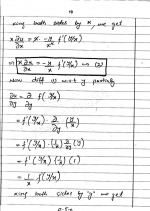 xing both sides by x, we get
x ∂u/∂x = x · -y/x² f'(y/x)
⇒ x ∂u/∂x = -y/x f'(y/x) → (2)
Now diff w.r.t y partially
∂u/∂y = ∂/∂y f(y/x)
= f'(y/x) · ∂/∂y (y/x)
= f'(y/x) · (1/x) ∂/∂y (y)
= f'(y/x) (1/x) (1)
= 1/x f'(y/x)
xing both sides by 'y' we get